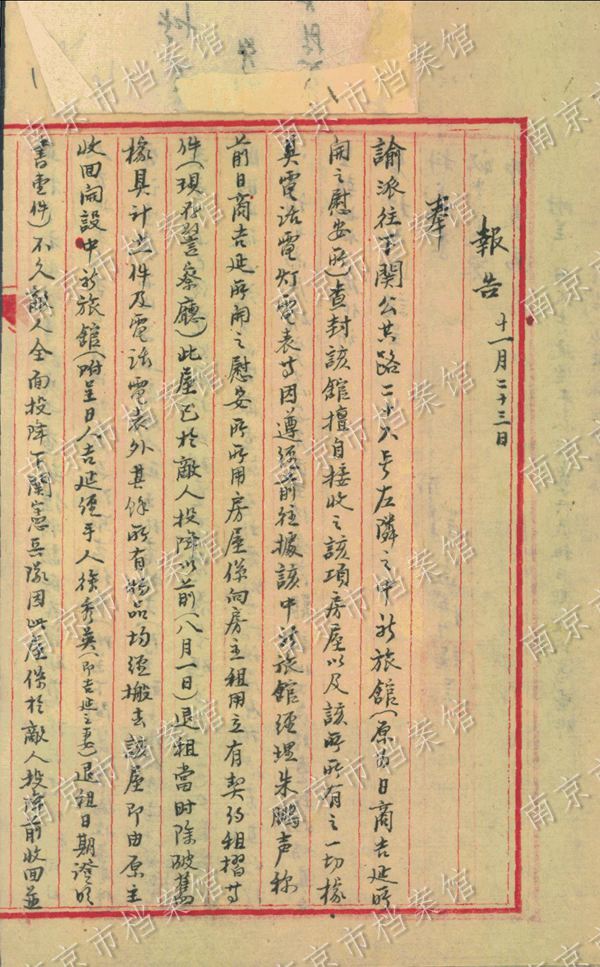 報告 十一月二十三日
奉
諭派往下關公共路二十八号左隣之中新旅館(原為日商吉延所
開之慰安所)查封該館擅自接收之該項房屋以及該所所有之一切傢
具電話電灯電表等因遵經前往據該中新旅館經理朱鵬声称
前日商吉延所開之慰安所所用房屋係向房主租用立有契約租摺等
件(現存警察廳)此屋已於敵人投降以前(八月一日)退租當時除破舊
傢具計 件及電話電表外其餘所有物品均經搬去該屋即由原主
收回開設中新旅館(附呈日人吉延經手人徐秀英(即吉延之妻)退租日期證明
書壹件)不久敵人全面投降下關憲兵隊因此屋係於敵人投降前收回並
南京市档案馆